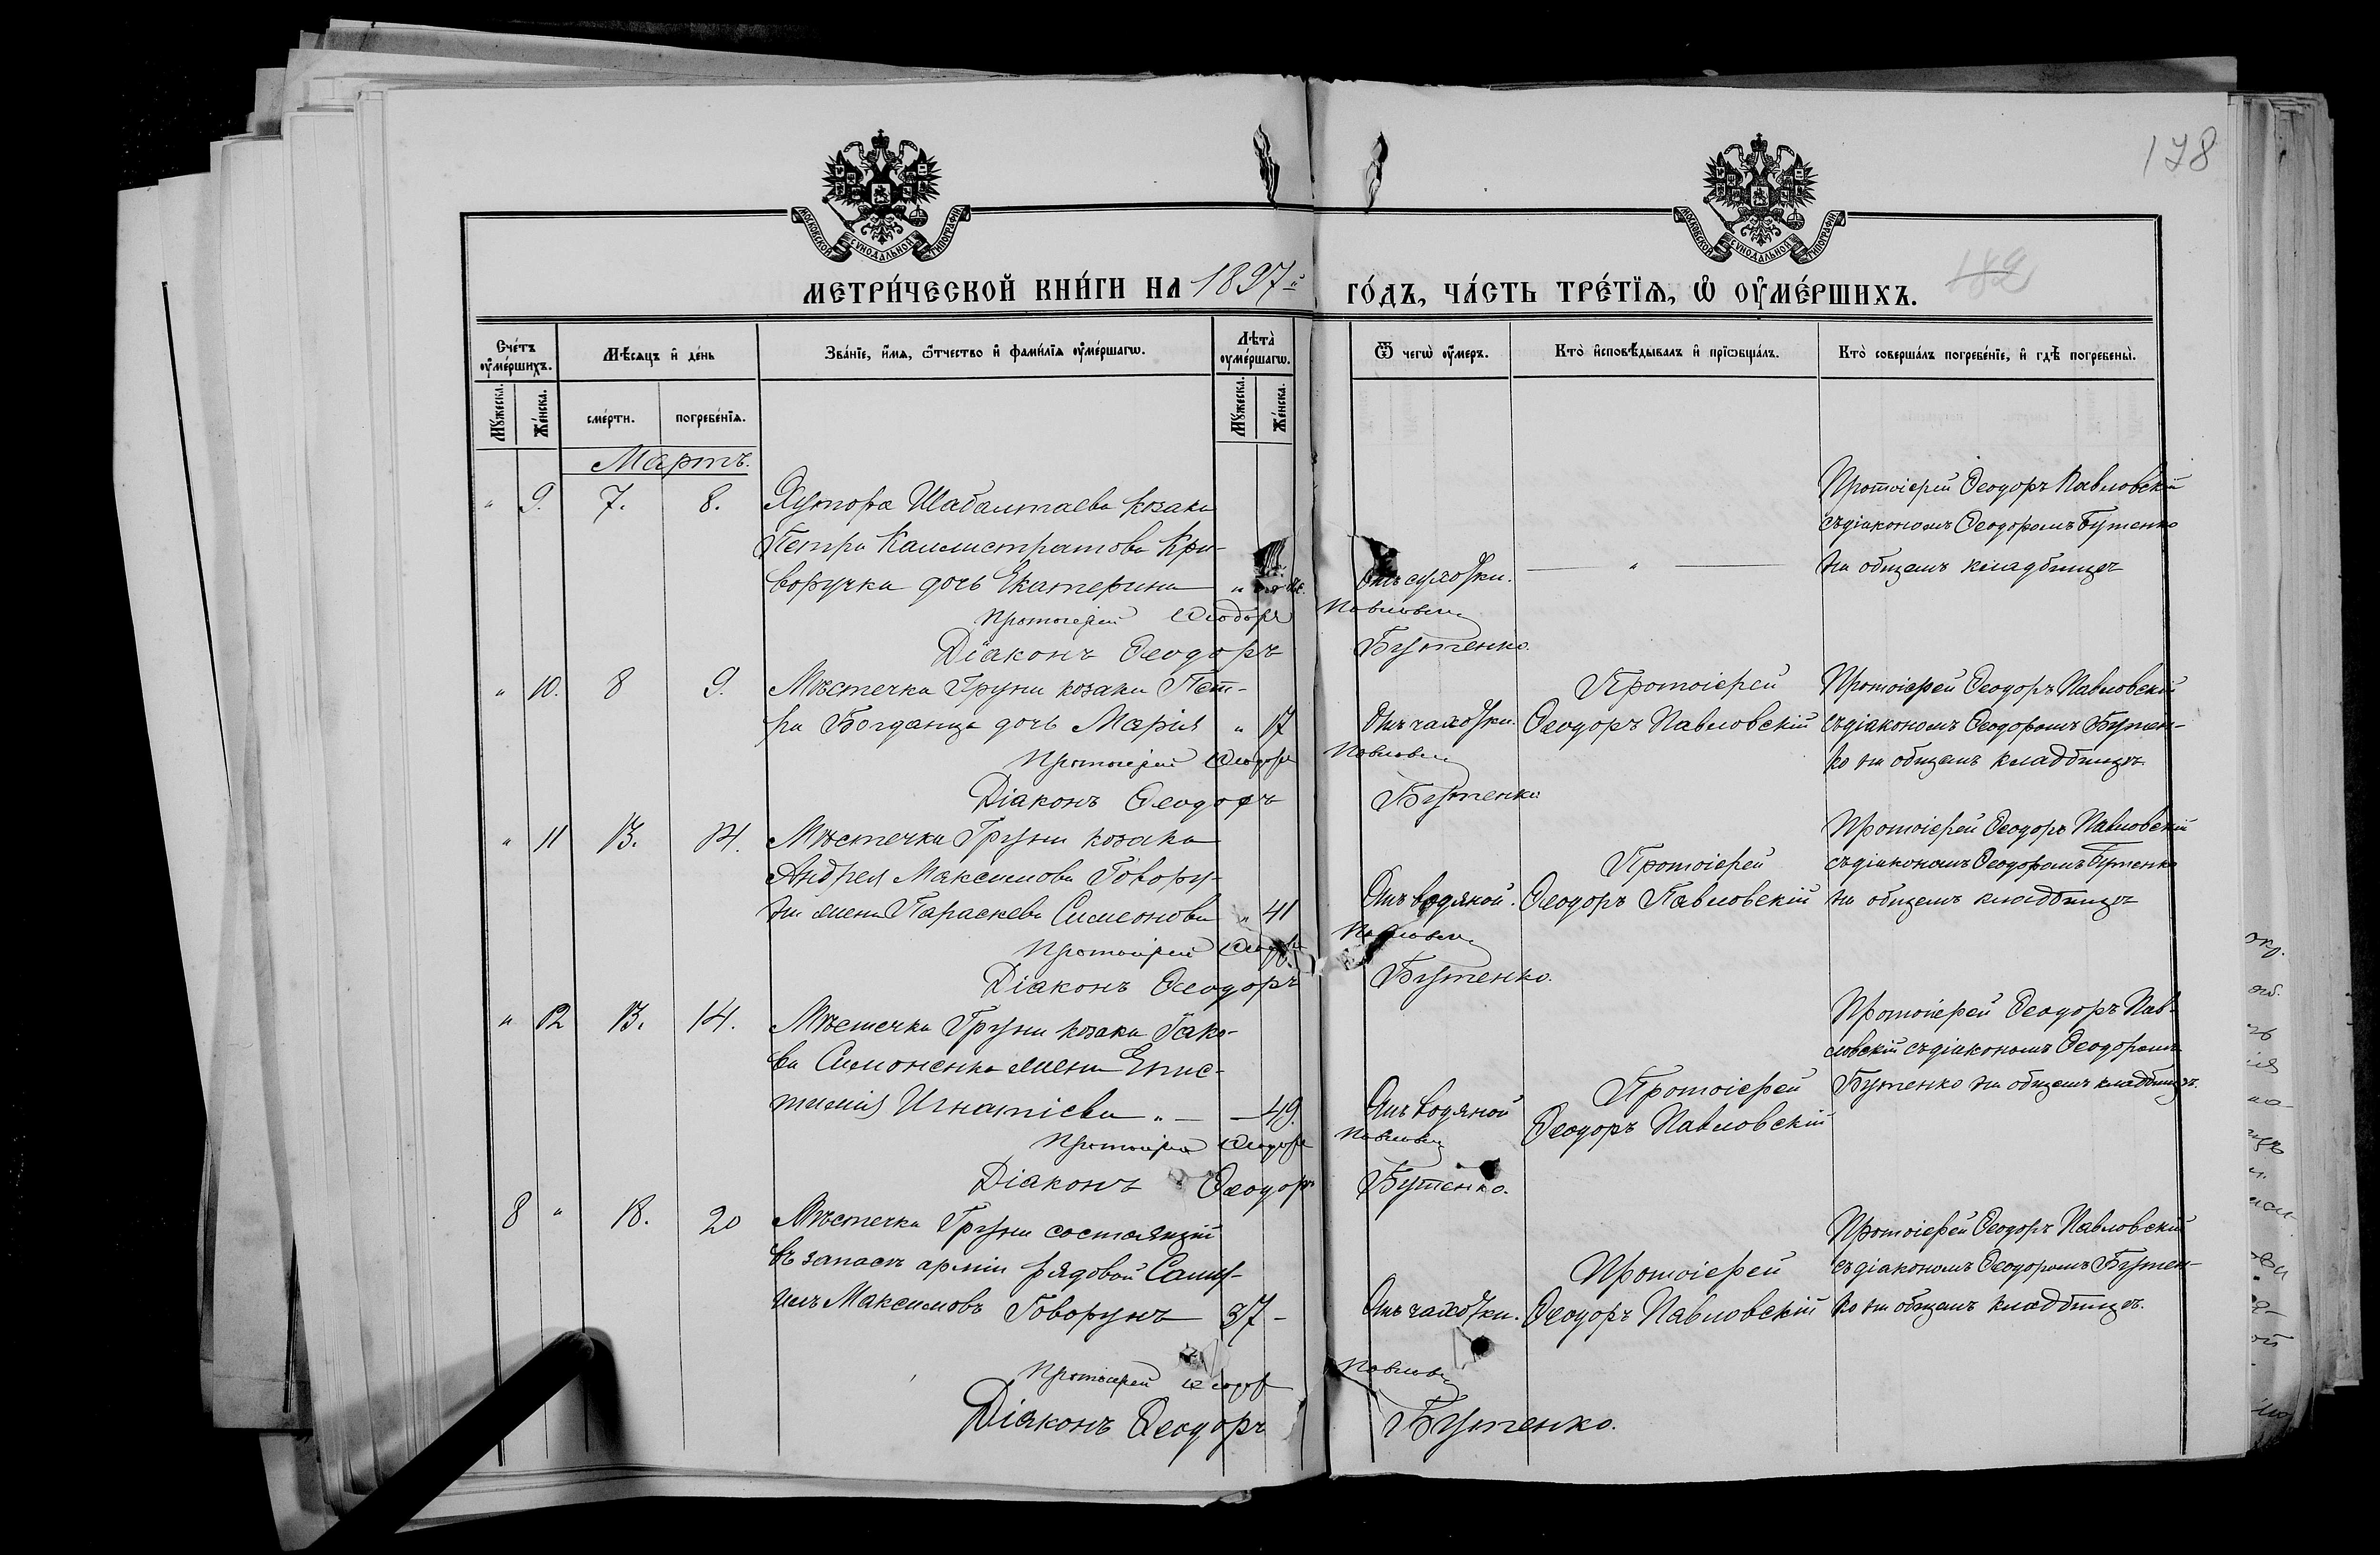 178
МОСКОВСКОЙ СУНОДАЛЬНОЙ ТИПОГРАФІИ
МОСКОВСКОЙ СУНОДАЛЬНОЙ ТИПОГРАФІИ
МЕТРИ́ЧЕСКОЙ КНИ́ГИ НА 1897й
ГО́ДЪ, ЧА́СТЬ ТРЕ́ТЇѦ, Ѡ҆ ОУ҆МЕ́РШИХЪ.
182
Сче́тъ оу҆ме́ршихъ.
Мѣ́сяцъ и҆ де́нь
Зва́нїе, и҆́мѧ, ѻ҆́тчество и҆ фами́лїѧ оу҆ме́ршагѡ.
Лѣ́та оу҆ме́ршагѡ.
Ѿ чегѡ̀ оу҆́меръ.
Кто̀ и҆сповѣ́дывалъ и҆ прїѡбща́лъ.
Кто̀ соверша́лъ погребе́нїе, и҆ гдѣ̀ погребены̀.
Мꙋ́жеска. Же́нска.
сме́рти. погребе́нїѧ.
Мꙋ́жеска. Же́нска.
Мартъ.
" 9. 7. 8. Хутора Шабалтаева козака
Петра Каллистратова Кри-
воручка дочь Екатерина "
Отъ сухотки.
"
Протоіерей Ѳеодоръ Павловскій
съ діакономъ Ѳеодоромъ Бутенко
на общемъ кладбищѣ
Протоіерей Ѳеодоръ Павловскій
Діаконъ Ѳеодоръ Бутенко.
" 10. 8 9. Мѣстечка Груни козака Пет-
ра Богданца дочь Марія " 17
Отъ чахотки.
Протоіерей
Ѳеодоръ Павловскій
Протоіерей Ѳеодоръ Павловскій
съ діакономъ Ѳеодоромъ Бутен-
ко на общемъ кладбищѣ.
Протоіерей Ѳеодоръ Павловскій
Діаконъ Ѳеодоръ Бутенко
" 11 13. 14. Мѣстечка Груни козака
Андрея Максимова Говору-
на жена Параскева Симеонова " 41
Отъ водяной.
Протоіерей
Ѳеодоръ Павловскій
Протоіерей Ѳеодоръ Павловскій
съ діакономъ Ѳеодоромъ Бутенко
на общемъ кладбищѣ
Протоіерей Ѳеодоръ Павловскій
Діаконъ Ѳеодоръ Бутенко.
" 12 13. 14. Мѣстечка Груни козака Іако-
ва Симоненка жена Епис-
тимія Игнатіева " — — 49.
Отъ водяной
Протоіерей
Ѳеодоръ Павловскій
Протоіерей Ѳеодоръ Пав-
ловскій съ діакономъ Ѳеодоромъ
Бутенко на общемъ кладбищѣ.
Протоіерей Ѳеодоръ Павловскій
Діаконъ Ѳеодоръ Бутенко.
8 " 18. 20 Мѣстечка Груни состоящій
въ запасѣ арміи рядовой Саму-
илъ Максимовъ Говорунъ 37 -
Отъ чахотки.
Протоіерей
Ѳеодоръ Павловскій
Протоіерей Ѳеодоръ Павловскій
съ діакономъ Ѳеодоромъ Бутен-
ко на общемъ кладбищѣ.
Протоіерей Ѳеодоръ Павловскій
Діаконъ Ѳеодоръ Бутенко.